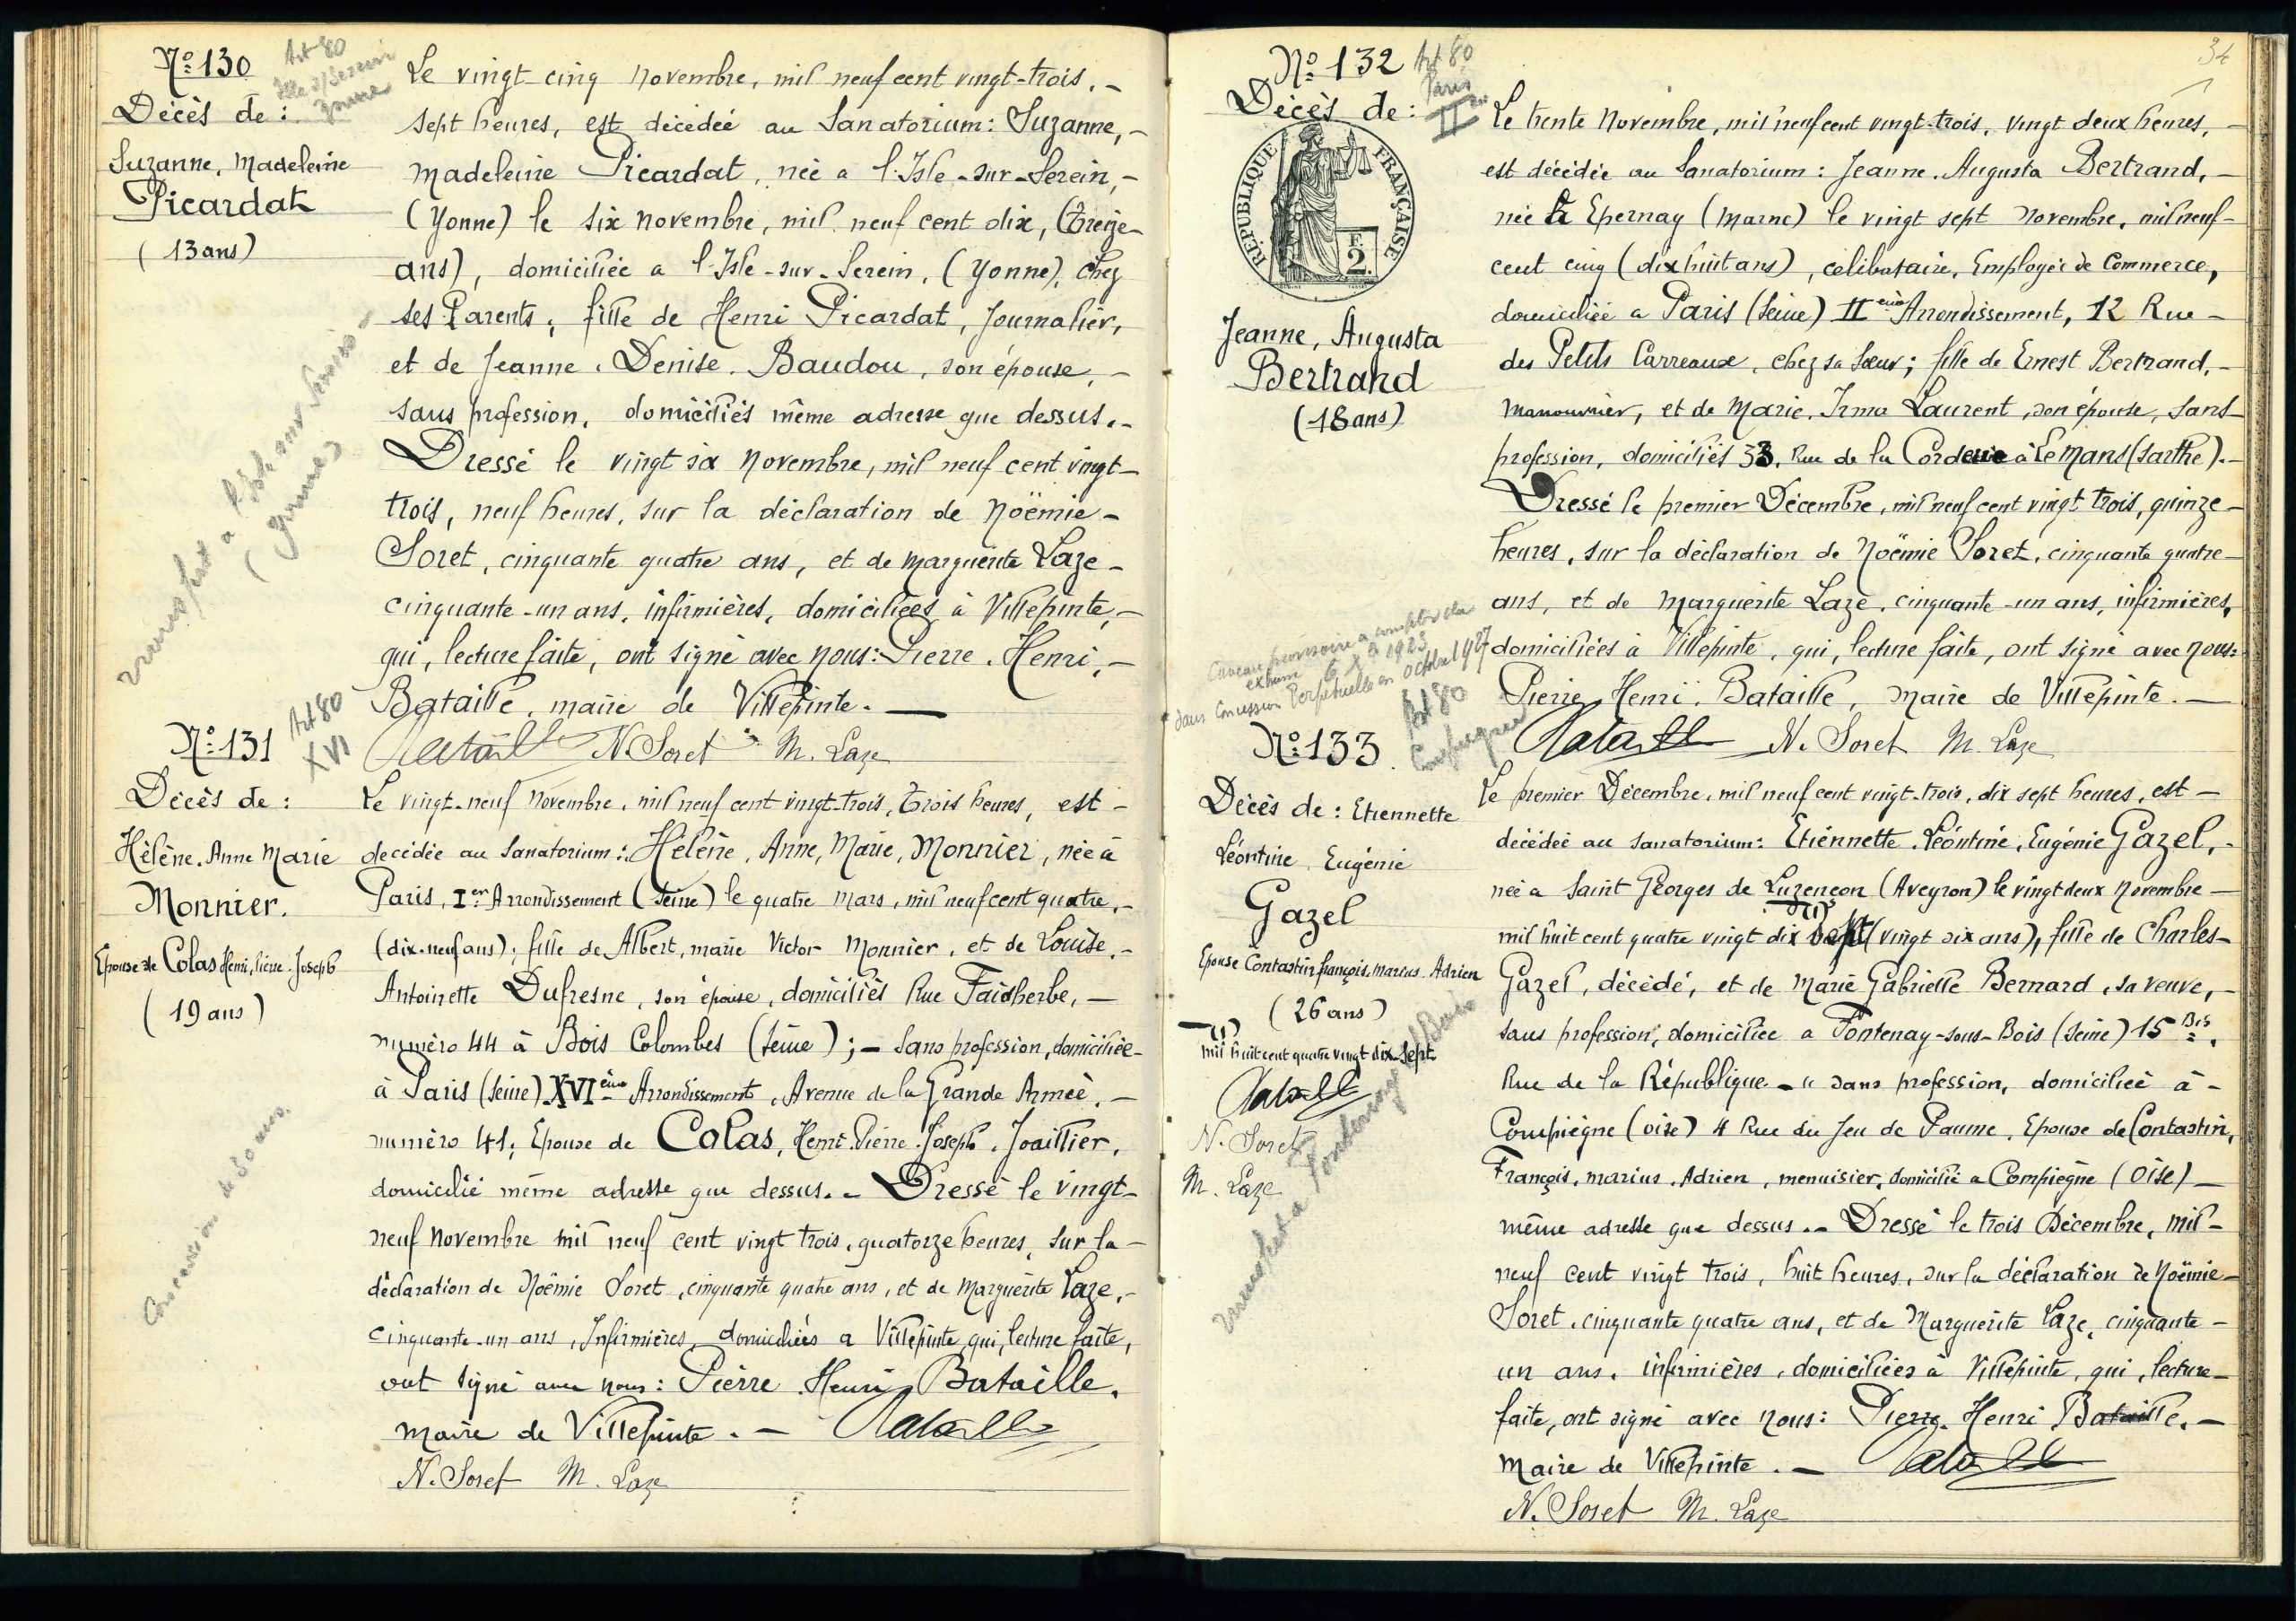 Nº 130
Art 80
Décès de :
Suzanne, Madeleine
Picardat
(13 ans)
Le vingt-cinq Novembre, mil neuf cent vingt-trois. -
sept heures, est décédée au Sanatorium : Suzanne, -
Madeleine Picardat, née a l'Isle-sur-Serein, -
(Yonne) le six novembre, mil neuf cent dix, (treize-
ans), domiciliée a l'Isle-sur-Serein, (Yonne), chez
ses Parents, fille de Henri Picardat, Journalier,
et de Jeanne. Denise. Baudou, son épouse, -
sans profession, domiciliés même adresse que dessus. -
Dressé le vingt six Novembre, mil neuf cent vingt-
trois, neuf heures, sur la déclaration de Noëmie -
Soret, cinquante quatre ans, et de Marguerite Laze -
cinquante-un ans, infirmières, domiciliées à Villepinte, -
qui, lecture faite, ont signé avec nous : Pierre. Henri, -
Bataille, maire de Villepinte. -
Bataille N. Soret M. Laze
Nº 131
Art 80
XVI
Décès de :
Hélène. Anne Marie
Monnier.
Epouse de Colas Henri, Pierre. Joseph
(19 ans)
Concession de 30 ans.
Le vingt-neuf Novembre, mil neuf cent vingt-trois, trois heures, est -
décédée au Sanatorium : Hélène, Anne, Marie, Monnier, née à
Paris, Ier Arrondissement (Seine) le quatre Mars, mil neuf cent quatre, -
(dix-neuf ans) ; fille de Albert, marie Victor Monnier, et de Louise, -
Antoinette Dufresne, son épouse, domiciliés Rue Faidherbe, -
numéro 44 à Bois Colombes (Seine) ; - Sans profession, domiciliée -
à Paris (Seine) XVIème Arrondissement, Avenue de la Grande Armée, -
numéro 41, Epouse de Colas, Henri. Pierre. Joseph, Joaillier,
domicilié même adresse que dessus. - Dressé le vingt-
neuf Novembre mil neuf cent vingt trois, quatorze heures, sur la -
déclaration de Noëmie Soret, cinquante quatre ans, et de Marguerite Laze, -
cinquante-un ans, Infirmières, domiciliées a Villepinte, qui, lecture faite,
ont signé avec nous : Pierre Henri Bataille,
maire de Villepinte. - Bataille
N. Soret M. Laze
34
Nº 132
Art 80
Paris
II
Décès de :
REPUBLIQUE FRANÇAISE
F.
2.
Jeanne, Augusta
Bertrand
(18 ans)
Le trente Novembre, mil neuf cent vingt-trois, vingt deux heures, -
est décédée au Sanatorium : Jeanne. Augusta Bertrand, -
née à Epernay (Marne) le vingt sept Novembre, mil neuf-
cent cinq (dix huit ans), célibataire, Employée de Commerce,
domiciliée a Paris (Seine) IIème Arrondissement, 12 Rue -
des Petits Carreaux, chez sa Sœur ; fille de Ernest Bertrand, -
Manouvrier, et de Marie, Irma Laurent, son épouse, Sans -
profession, domiciliés 33, Rue de la Corderie à Le Mans (Sarthe). -
Dressé le premier Décembre, mil neuf cent vingt trois, quinze -
heures, sur la déclaration de Noëmie Soret, cinquante quatre -
ans, et de Marguerite Laze, cinquante-un ans, infirmières,
domiciliées à Villepinte, qui, lecture faite, ont signé avec nous :
Pierre Henri. Bataille, Maire de Villepinte. -
Bataille N. Soret M. Laze
Nº 133
Art 80
Décès de : Etiennette
Léontine Eugénie
Gazel
Epouse Contastin françois, Marius. Adrien
(26 ans)
mil huit cent quatre vingt dix-sept
Bataille
N. Soret
M. Laze
Le premier Décembre, mil neuf cent vingt-trois, dix sept heures, est -
décédée au Sanatorium : Etiennette. Léontine, Eugénie Gazel, -
née a Saint Georges de Luzençon (Aveyron) le vingt deux Novembre -
mil huit cent quatre vingt dix sept (vingt six ans), fille de Charles -
Gazel, décédé, et de Marie Gabrielle Bernard, sa veuve, -
sans profession, domiciliée a Fontenay-sous-Bois (Seine) 15 Bis,
Rue de la République - " Sans profession, domiciliée à -
Compiègne (Oise) 4 Rue du Jeu de Paume, Epouse de Contastin,
François, Marius. Adrien, menuisier, domicilié a Compiègne (Oise) -
même adresse que dessus. - Dressé le trois Décembre, mil -
neuf cent vingt trois, huit heures, sur la déclaration de Noëmie -
Soret, cinquante quatre ans, et de Marguerite Laze, cinquante -
un ans, infirmières, domiciliées à Villepinte, qui, lecture -
faite, ont signé avec nous : Pierre. Henri Bataille. -
Maire de Villepinte. - Bataille
N. Soret M. Laze